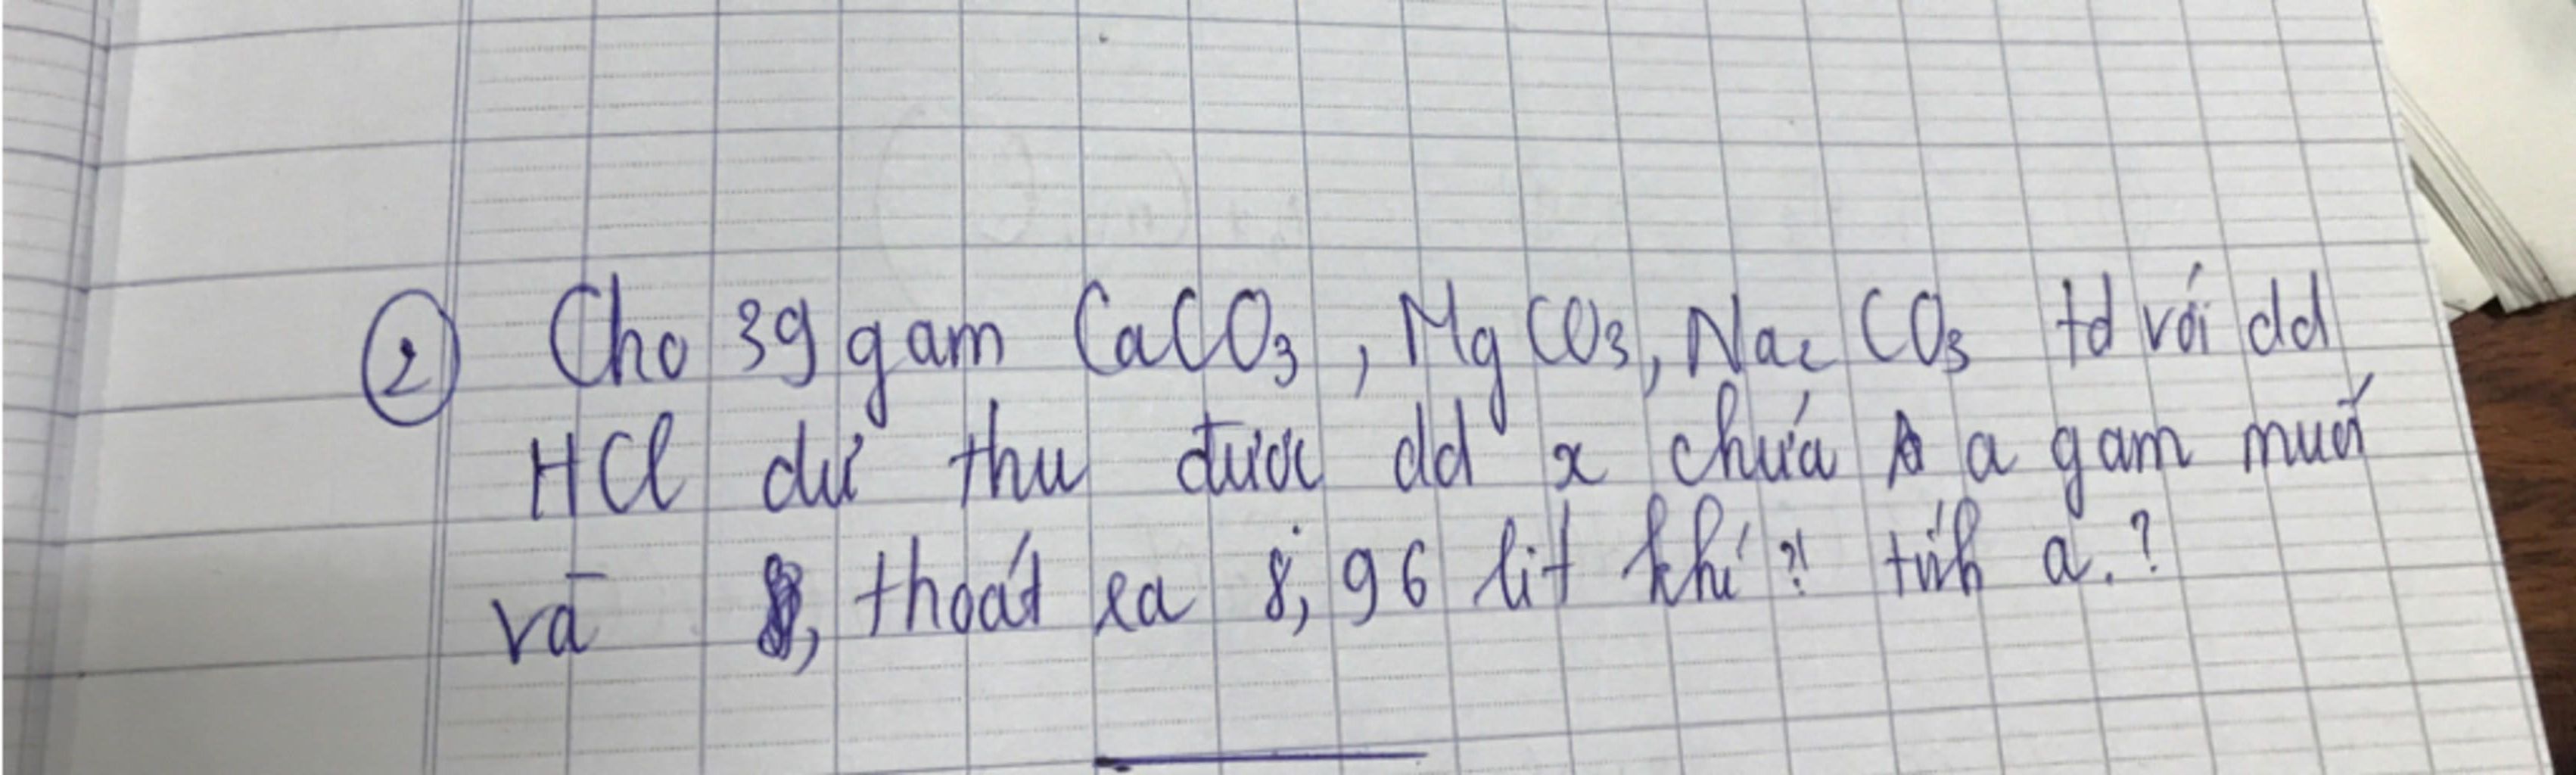 ② Cho 39 gam CaCO₃, MgCO₃, Na₂CO₃ td với dd
HCl dư thu được dd x chứa a gam muối
và , thoát ra 8,96 lit khí ?! tính a.?